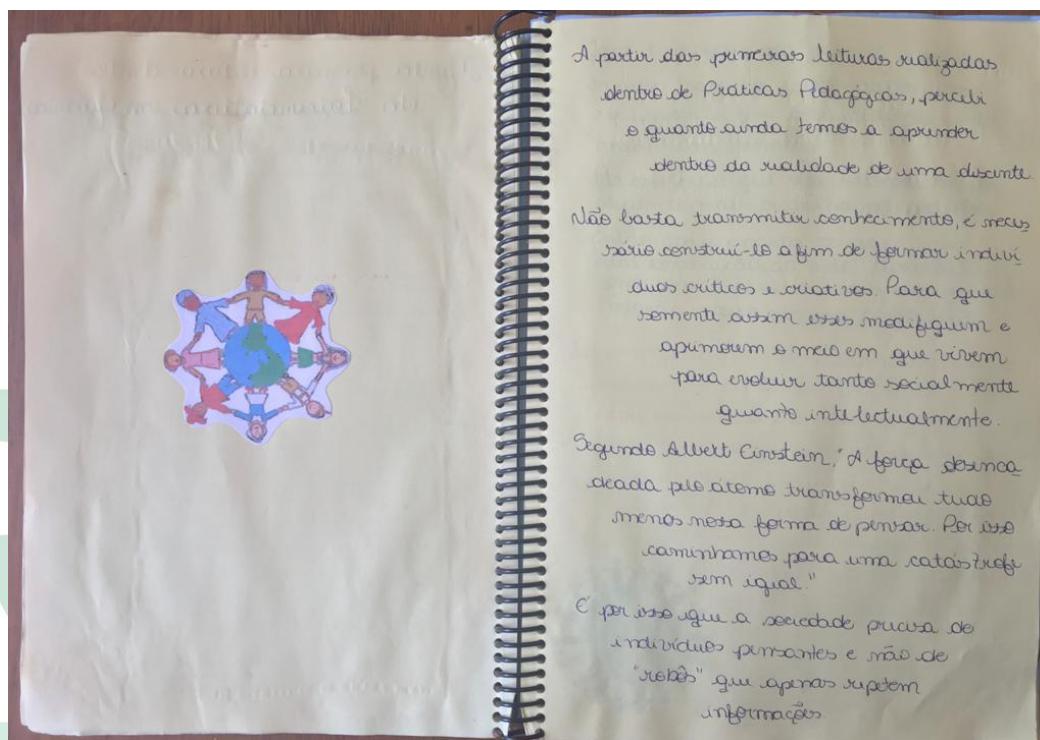 A partir das primeiras leituras realizadas
dentro de Práticas Pedagógicas, percebi
o quanto ainda temos a aprender
dentro da realidade de uma discente.
Não basta transmitir conhecimento, é neces
sário construí-lo a fim de formar indiví
duos críticos e criativos. Para que
somente assim esses modifiquem e
aprimorem o meio em que vivem
para evoluir tanto socialmente
quanto intelectualmente.
Segundo Albert Einstein, "A força desenca
deada pelo átomo transformou tudo
menos nossa forma de pensar. Por isso
caminhamos para uma catástrofe
sem igual."
É por isso que a sociedade precisa de
indivíduos pensantes e não de
"robôs" que apenas repetem
informações